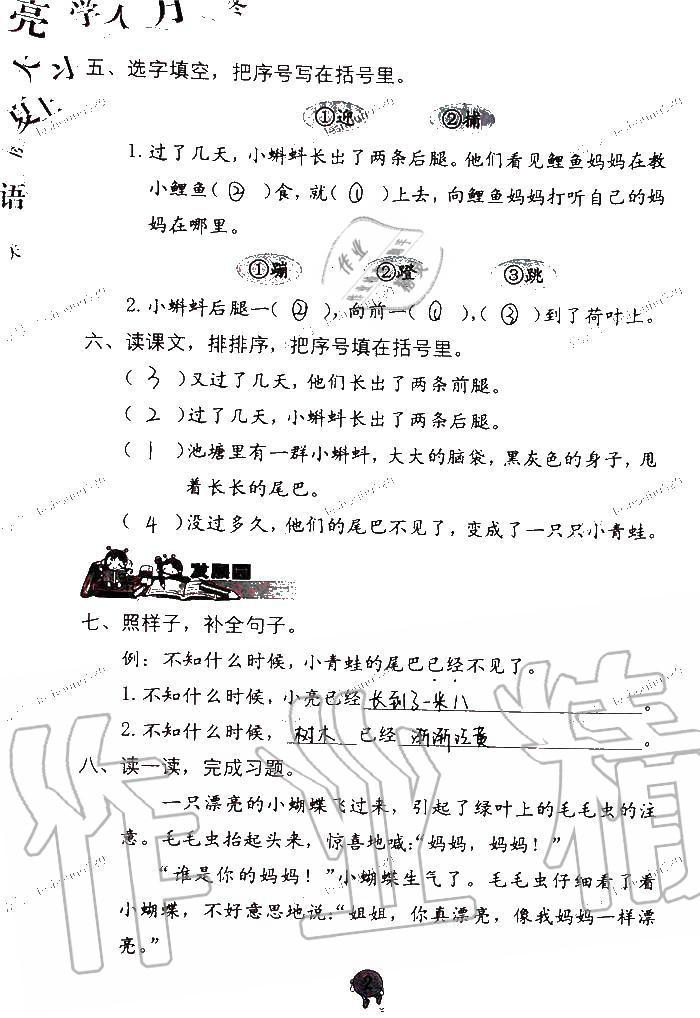 亮 学 人 月 冬
五、选字填空，把序号写在括号里。
①迎 ②捕
1.过了几天，小蝌蚪长出了两条后腿。他们看见鲤鱼妈妈在教
小鲤鱼（②）食，就（①）上去，向鲤鱼妈妈打听自己的妈
妈在哪里。
①蹦 ②蹬 ③跳
2.小蝌蚪后腿一（②），向前一（①），（③）到了荷叶上。
六、读课文，排排序，把序号填在括号里。
（3）又过了几天，他们长出了两条前腿。
（2）过了几天，小蝌蚪长出了两条后腿。
（1）池塘里有一群小蝌蚪，大大的脑袋，黑灰色的身子，甩
着长长的尾巴。
（4）没过多久，他们的尾巴不见了，变成了一只只小青蛙。
发展园
七、照样子，补全句子。
例：不知什么时候，小青蛙的尾巴已经不见了。
1.不知什么时候，小亮已经长到了一米八。
2.不知什么时候，树木已经渐渐泛黄。
八、读一读，完成习题。
一只漂亮的小蝴蝶飞过来，引起了绿叶上的毛毛虫的注
意。毛毛虫抬起头来，惊喜地喊：“妈妈，妈妈！”
“谁是你的妈妈！”小蝴蝶生气了。毛毛虫仔细看了看
小蝴蝶，不好意思地说：“姐姐，你真漂亮，像我妈妈一样漂
亮。”
2
作业精